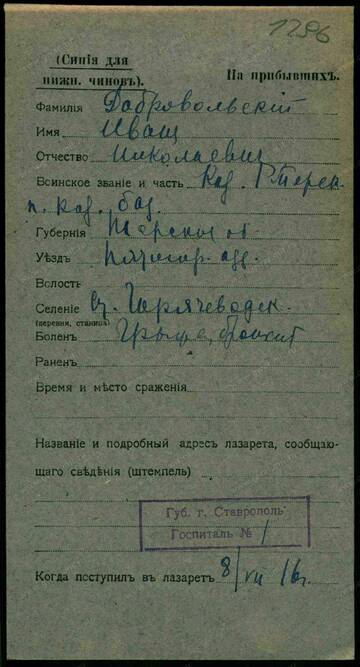 1296
(Синія для
нижн. чиновъ). На прибывшихъ.
Фамилія Добровольскій
Имя Иван
Отчество Николаевич
Воинское званіе и часть Каз.
п. Каз.
Губернія Терской об
Уѣздъ Пятигор. отд.
Волость
Селеніе ст. Горячеводск.
(деревня, станица)
Боленъ Грыжа, бронхит
Раненъ
Время и мѣсто сраженія
Названіе и подробный адресъ лазарета, сообщаю-
щаго свѣдѣнія (штемпель)
Губ. г. Ставрополь
Госпиталь № 1
Когда поступилъ въ лазаретъ 8/VII 16г.